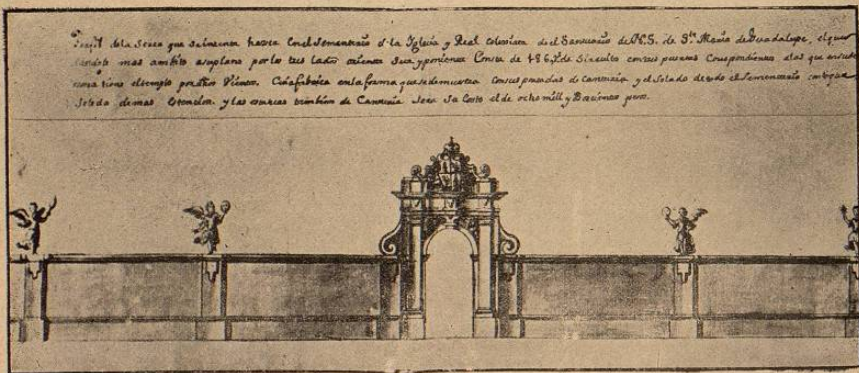 Perfil de la Serca que se intenta haser en el Sementerio d. la Iglecia y Real Colexiata de el Santuario de N. S. de Sta. Maria de Guadalupe, el que
mas ambito asu plano por los tres lados oriente Sur, y poniente Consta de 486 Vs. de Sircuito con sus puertas Correspondientes alas que en su
tiene el templo por dhos Vientos. Cuia fabrica en la forma que se demuestra con sus portadas de canteria y el Solado de todo el Sementerio con
de mas Estencion. y las tambien de Canteria Sera Su Costo el de ocho mill y Docientos pesos.